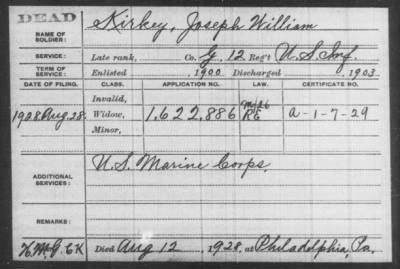 DEAD
NAME OF SOLDIER: Kirkey, Joseph William
SERVICE: Late rank, Co. G, 12 Reg't U.S. Inf.
TERM OF SERVICE: Enlisted 1900 Discharged , 1903
DATE OF FILING. CLASS. APPLICATION NO. LAW. CERTIFICATE NO.
Invalid,
1928 Aug 28 Widow, 1,622,886 RE A-1-7-29
Minor,
ADDITIONAL SERVICES: U.S. Marine Corps.
REMARKS:
Died Aug 12, 1928, at Philadelphia, Pa.